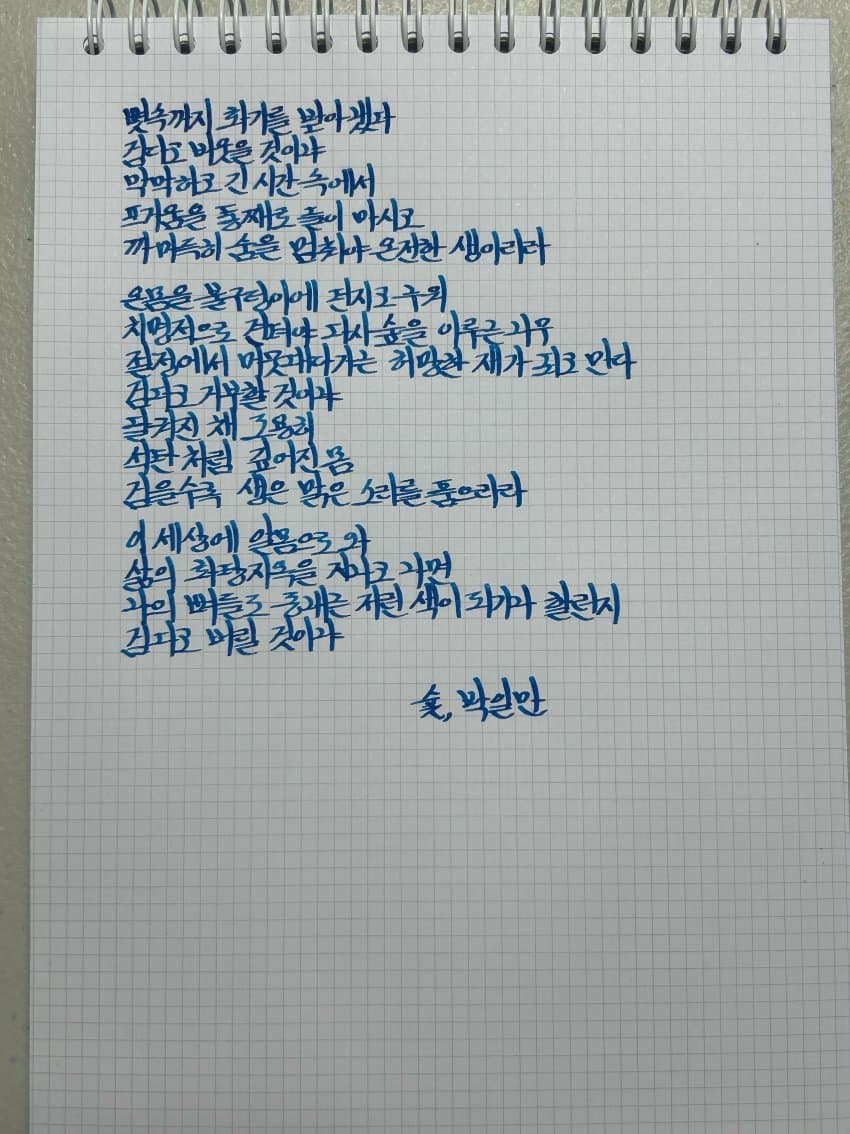 뼛속까지 화기를 받아냈다
검다고 비웃을 것이냐
막막하고 긴 시간 속에서
뜨거움을 통째로 들이 마시고
까마득히 숨을 멈춰야 온전한 생이리라
온몸을 불구덩이에 던지고 누워
치명적으로 견뎌야 다시 숲을 이루는 나무
절정에서 머뭇대다가는 허망한 재가 되고 만다
검다고 거부할 것이냐
달궈진 채 고용히
석탄처럼 깊어진 몸
검을수록 생은 맑은 소리를 품으리라
이 세상에 알몸으로 와
삶의 화탕지옥을 지나고 나면
나의 뼈들도 통래는 저린 색이 되거나 할런지
검다고 버릴 것이냐
숯, 박일만